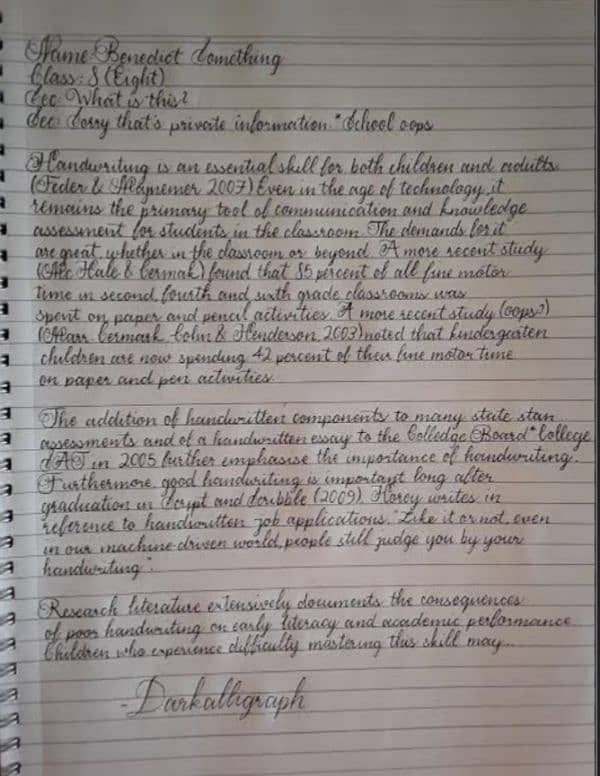 Name: Benedict Something
Class: 8 (Eight)
Sec: What is this?
Sec: Sorry that's private information. *School oops
Handwriting is an essential skill for both children and adults
(Feder & Majnemer 2007) Even in the age of technology, it
remains the primary tool of communication and knowledge
assessment for students in the classroom. The demands for it
are great, whether in the classroom or beyond. A more recent study
(Mc Hale & Cermak) found that 85 percent of all fine motor
time in second, fourth and sixth grade classrooms was
spent on paper and pencil activities. A more recent study (oops?)
(Marr, Cermark, Cohn & Henderson, 2003) noted that kindergaten
children are now spending 42 percent of their fine motor time
on paper and pen activities.
The addition of handwritten components to many state stan
assessments and of a handwritten essay to the Colledge Board* College
SAT in 2005 further emphasise the importance of handwriting.
Furthermore, good handwriting is important long after
graduation in Script and Scribble (2009), Florey writes in
reference to handwritten job applications. "Like it or not, even
in our machine-driven world, people still judge you by your
handwriting".
Research literature extensively documents the consequences
of poor handwriting on early literacy and academic performance.
Children who experience difficulty mastering this skill may...
-Darkalligraph